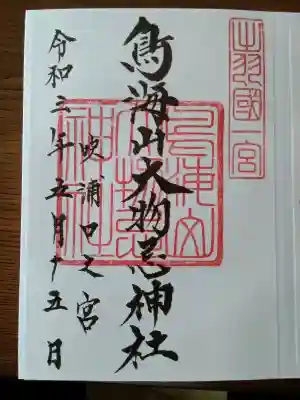 出羽國一宮
鳥海山大物忌神社
吹浦口之宮
令和三年五月十五日